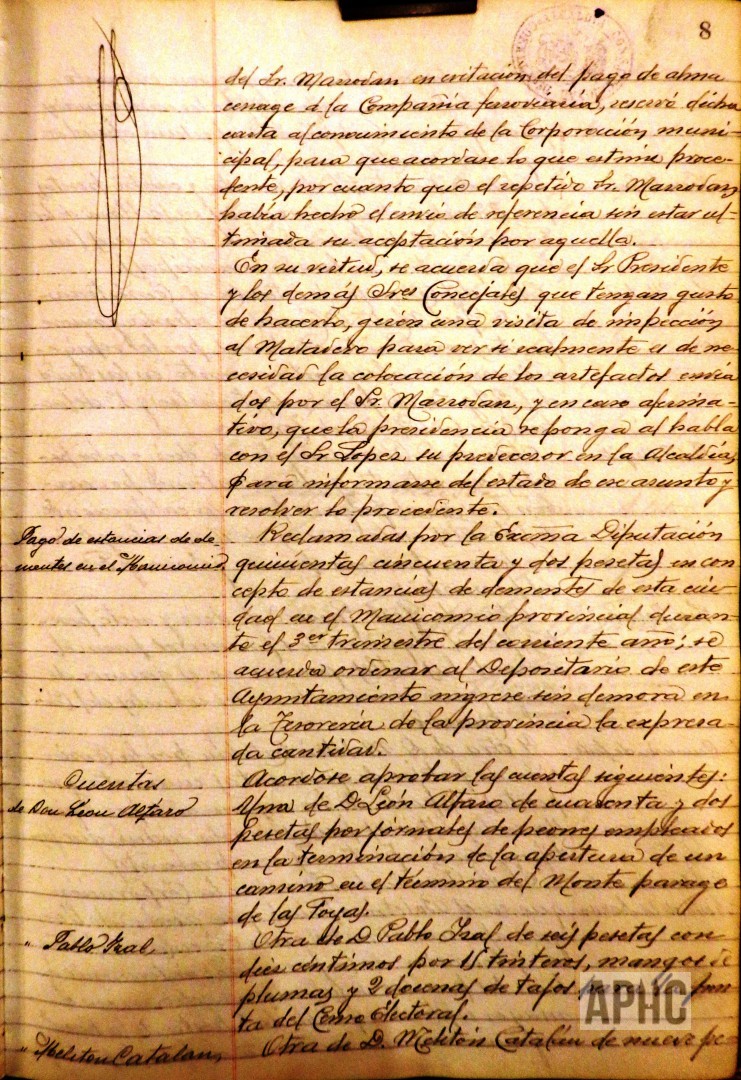 8
del Sr. Marrodan en evitación del pago de alma
cenage á la Compañía ferroviaria, reservó dicha
carta al conocimiento de la Corporación muni-
cipal, para que acordase lo que estime proce-
dente, por cuanto que el repetido Sr. Marrodan,
había hecho el envio de referencia sin estar ul-
timada su aceptación por aquella.
En su virtud, se acuerda que el Sr Presidente
y los demás Sres Concejales que tengan gusto
de hacerlo, giren una visita de inspección
al Matadero para ver si realmente es de ne-
cesidad la colocación de los artefactos envia
dos por el Sr. Marrodan, y en caso afirma-
tivo, que la presidencia se ponga al habla
con el Sr Lopez su predecesor en la Alcaldía,
para informarse del estado de ese asunto y
resolver lo procedente.
Pago de estancias de de
mentes en el Manicomio
Reclamadas por la Excma Diputación
quinientas cincuenta y dos pesetas en con
cepto de estancias de dementes de esta ciu-
dad en el Manicomio provincial duran-
te el 3er trimestre del corriente año; se
acuerda ordenar al Depositario de este
Ayuntamiento ingrese sin demora en
la Tesorería de la provincia la expresa-
da cantidad.
Cuentas
de Don León Alfaro
Acordose aprobar las cuentas siguientes:
Una de D. León Alfaro de cuarenta y dos
pesetas por jornales de peones empleados
en la terminación de la apertura de un
camino en el término del Monte parage
de las Foyas.
" Pablo Isal
Otra de D. Pablo Isal de seis pesetas con
diez céntimos por 15 tinteros, mangos de
plumas y 2 docenas de para la Jun
ta del Censo Electoral.
" Meliton Catalan,
Otra de D. Melitón Catalán de nueve pe
APHC